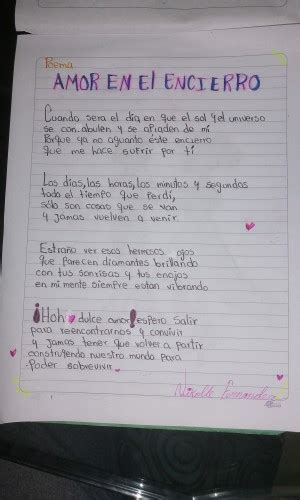 Poema
AMOR EN El ENCIERRO
Cuando sera el dia en que el sol y el universo
se con abulen y se apiaden de mi
Porque ya no aguanto este encierro
que me hace sufrir por ti
Los dias, las horas, los minutos y segundos
todo el tiempo que perdi,
sólo son cosas que se van
y jamas vuelven a venir.
Extraño ver esos hermosos ojos
que parecen diamantes brillando
con tus sonrisas y tus enojos
en mi mente siempre estan vibrando
¡Hoh dulce amor! espero salir
para reencontrarnos y convivir
y jamas tener que volver a partir
construyendo nuestro mundo para
Poder sobrevivir.
Fernandez